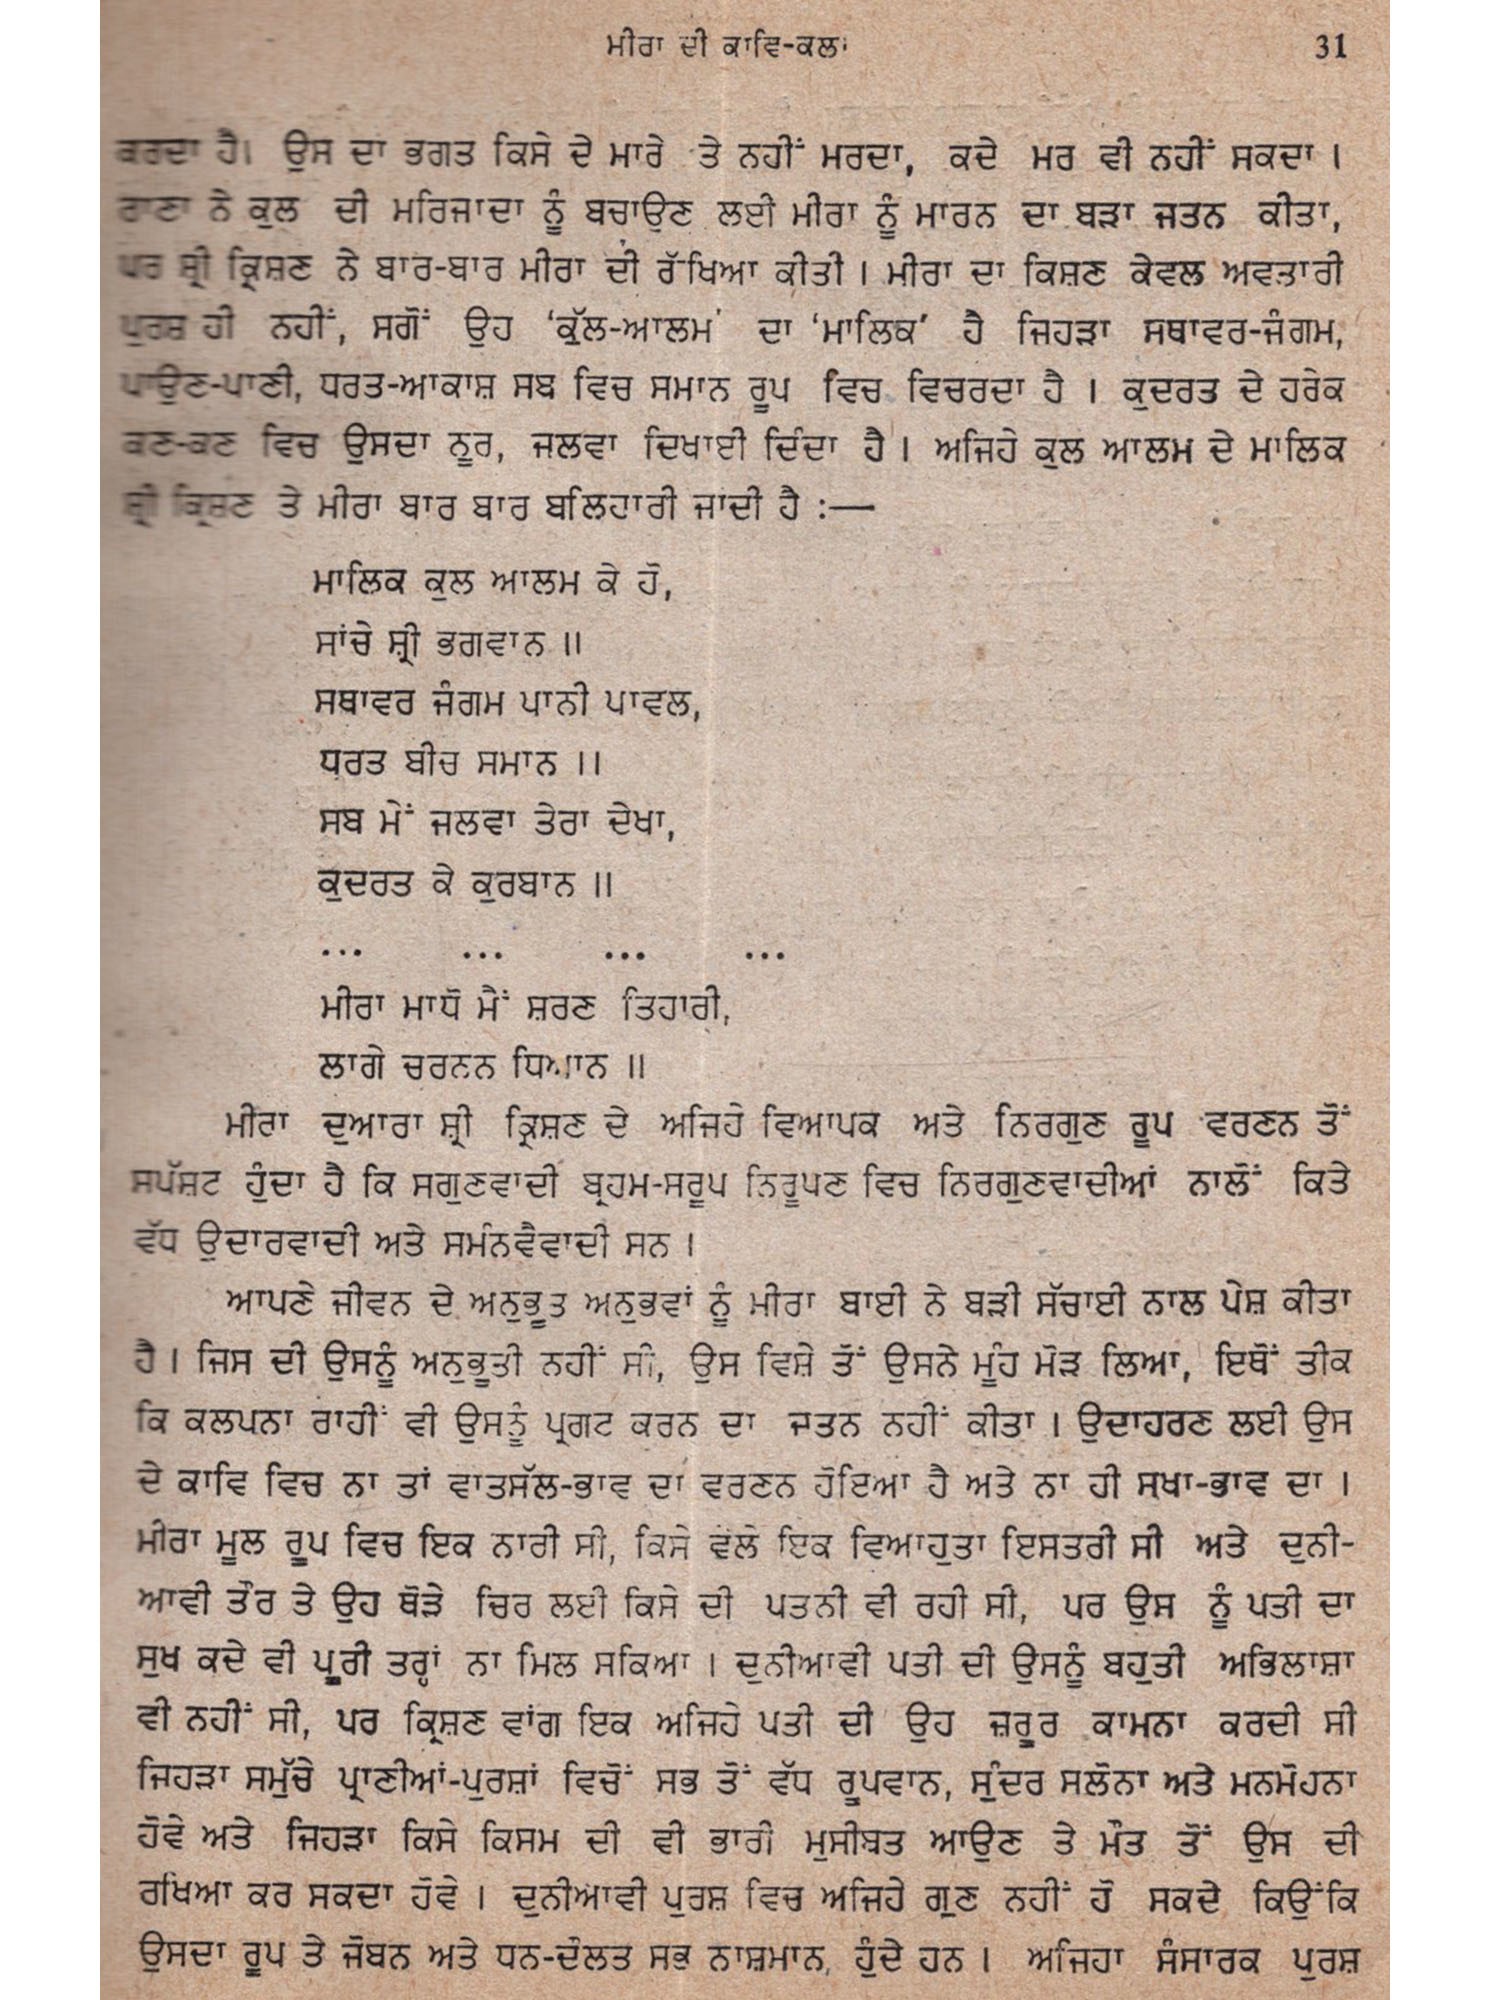 ਮੀਰਾ ਦੀ ਕਾਵਿ-ਕਲਾ 31
ਕਰਦਾ ਹੈ। ਉਸ ਦਾ ਭਗਤ ਕਿਸੇ ਦੇ ਮਾਰੇ ਤੇ ਨਹੀਂ ਮਰਦਾ, ਕਦੇ ਮਰ ਵੀ ਨਹੀਂ ਸਕਦਾ ।
ਰਾਣਾ ਨੇ ਕੁਲ ਦੀ ਮਰਿਜਾਦਾ ਨੂੰ ਬਚਾਉਣ ਲਈ ਮੀਰਾ ਨੂੰ ਮਾਰਨ ਦਾ ਬੜਾ ਜਤਨ ਕੀਤਾ,
ਪਰ ਸ਼੍ਰੀ ਕ੍ਰਿਸ਼ਣ ਨੇ ਬਾਰ-ਬਾਰ ਮੀਰਾ ਦੀ ਰੱਖਿਆ ਕੀਤੀ । ਮੀਰਾ ਦਾ ਕਿਸ਼ਣ ਕੇਵਲ ਅਵਤਾਰੀ
ਪੁਰਸ਼ ਹੀ ਨਹੀਂ, ਸਗੋਂ ਉਹ ‘ਕੁੱਲ-ਆਲਮ’ ਦਾ ‘ਮਾਲਿਕ’ ਹੈ ਜਿਹੜਾ ਸਥਾਵਰ-ਜੰਗਮ,
ਪਾਉਣ-ਪਾਣੀ, ਧਰਤ-ਆਕਾਸ਼ ਸਬ ਵਿਚ ਸਮਾਨ ਰੂਪ ਵਿਚ ਵਿਚਰਦਾ ਹੈ । ਕੁਦਰਤ ਦੇ ਹਰੇਕ
ਕਣ-ਕਣ ਵਿਚ ਉਸਦਾ ਨੂਰ, ਜਲਵਾ ਦਿਖਾਈ ਦਿੰਦਾ ਹੈ । ਅਜਿਹੇ ਕੁਲ ਆਲਮ ਦੇ ਮਾਲਿਕ
ਸ਼੍ਰੀ ਕ੍ਰਿਸ਼ਣ ਤੇ ਮੀਰਾ ਬਾਰ ਬਾਰ ਬਲਿਹਾਰੀ ਜਾਦੀ ਹੈ :—
ਮਾਲਿਕ ਕੁਲ ਆਲਮ ਕੇ ਹੋ,
ਸਾਂਚੇ ਸ਼੍ਰੀ ਭਗਵਾਨ ॥
ਸਥਾਵਰ ਜੰਗਮ ਪਾਨੀ ਪਾਵਲ,
ਧਰਤ ਬੀਚ ਸਮਾਨ ।।
ਸਬ ਮੇਂ ਜਲਵਾ ਤੇਰਾ ਦੇਖਾ,
ਕੁਦਰਤ ਕੇ ਕੁਰਬਾਨ ॥
... ... ... ...
ਮੀਰਾ ਮਾਧੋ ਮੈਂ ਸ਼ਰਣ ਤਿਹਾਰੀ,
ਲਾਗੇ ਚਰਨਨ ਧਿਆਨ ॥
ਮੀਰਾ ਦੁਆਰਾ ਸ਼੍ਰੀ ਕ੍ਰਿਸ਼ਣ ਦੇ ਅਜਿਹੇ ਵਿਆਪਕ ਅਤੇ ਨਿਰਗੁਣ ਰੂਪ ਵਰਣਨ ਤੋਂ
ਸਪੱਸ਼ਟ ਹੁੰਦਾ ਹੈ ਕਿ ਸਗੁਣਵਾਦੀ ਬ੍ਰਹਮ-ਸਰੂਪ ਨਿਰੂਪਣ ਵਿਚ ਨਿਰਗੁਣਵਾਦੀਆਂ ਨਾਲੋਂ ਕਿਤੇ
ਵੱਧ ਉਦਾਰਵਾਦੀ ਅਤੇ ਸਮੰਨਵੈਵਾਦੀ ਸਨ ।
ਆਪਣੇ ਜੀਵਨ ਦੇ ਅਨੁਭੂਤ ਅਨੁਭਵਾਂ ਨੂੰ ਮੀਰਾ ਬਾਈ ਨੇ ਬੜੀ ਸੱਚਾਈ ਨਾਲ ਪੇਸ਼ ਕੀਤਾ
ਹੈ । ਜਿਸ ਦੀ ਉਸਨੂੰ ਅਨੁਭੂਤੀ ਨਹੀਂ ਸੀ, ਉਸ ਵਿਸ਼ੇ ਤੋਂ ਉਸਨੇ ਮੂੰਹ ਮੋੜ ਲਿਆ, ਇਥੋਂ ਤੀਕ
ਕਿ ਕਲਪਨਾ ਰਾਹੀਂ ਵੀ ਉਸਨੂੰ ਪ੍ਰਗਟ ਕਰਨ ਦਾ ਜਤਨ ਨਹੀਂ ਕੀਤਾ । ਉਦਾਹਰਣ ਲਈ ਉਸ
ਦੇ ਕਾਵਿ ਵਿਚ ਨਾ ਤਾਂ ਵਾਤਸੱਲ-ਭਾਵ ਦਾ ਵਰਣਨ ਹੋਇਆ ਹੈ ਅਤੇ ਨਾ ਹੀ ਸਖਾ-ਭਾਵ ਦਾ ।
ਮੀਰਾ ਮੂਲ ਰੂਪ ਵਿਚ ਇਕ ਨਾਰੀ ਸੀ, ਕਿਸੇ ਵਲੇ ਇਕ ਵਿਆਹੁਤਾ ਇਸਤਰੀ ਸੀ ਅਤੇ ਦੁਨੀ-
ਆਵੀ ਤੌਰ ਤੇ ਉਹ ਥੋੜੇ ਚਿਰ ਲਈ ਕਿਸੇ ਦੀ ਪਤਨੀ ਵੀ ਰਹੀ ਸੀ, ਪਰ ਉਸ ਨੂੰ ਪਤੀ ਦਾ
ਸੁਖ ਕਦੇ ਵੀ ਪੂਰੀ ਤਰ੍ਹਾਂ ਨਾ ਮਿਲ ਸਕਿਆ । ਦੁਨੀਆਵੀ ਪਤੀ ਦੀ ਉਸਨੂੰ ਬਹੁਤੀ ਅਭਿਲਾਸ਼ਾ
ਵੀ ਨਹੀਂ ਸੀ, ਪਰ ਕ੍ਰਿਸ਼ਣ ਵਾਂਗ ਇਕ ਅਜਿਹੇ ਪਤੀ ਦੀ ਉਹ ਜ਼ਰੂਰ ਕਾਮਨਾ ਕਰਦੀ ਸੀ
ਜਿਹੜਾ ਸਮੁੱਚੇ ਪ੍ਰਾਣੀਆਂ-ਪੁਰਸ਼ਾਂ ਵਿਚੋਂ ਸਭ ਤੋਂ ਵੱਧ ਰੂਪਵਾਨ, ਸੁੰਦਰ ਸਲੋਨਾ ਅਤੇ ਮਨਮੋਹਨਾ
ਹੋਵੇ ਅਤੇ ਜਿਹੜਾ ਕਿਸੇ ਕਿਸਮ ਦੀ ਵੀ ਭਾਰੀ ਮੁਸੀਬਤ ਆਉਣ ਤੇ ਮੌਤ ਤੋਂ ਉਸ ਦੀ
ਰਖਿਆ ਕਰ ਸਕਦਾ ਹੋਵੇ । ਦੁਨੀਆਵੀ ਪੁਰਸ਼ ਵਿਚ ਅਜਿਹੇ ਗੁਣ ਨਹੀਂ ਹੋ ਸਕਦੇ ਕਿਉਂਕਿ
ਉਸਦਾ ਰੂਪ ਤੇ ਜੋਬਨ ਅਤੇ ਧਨ-ਦੌਲਤ ਸਭ ਨਾਸ਼ਮਾਨ, ਹੁੰਦੇ ਹਨ । ਅਜਿਹਾ ਸੰਸਾਰਕ ਪੁਰਸ਼